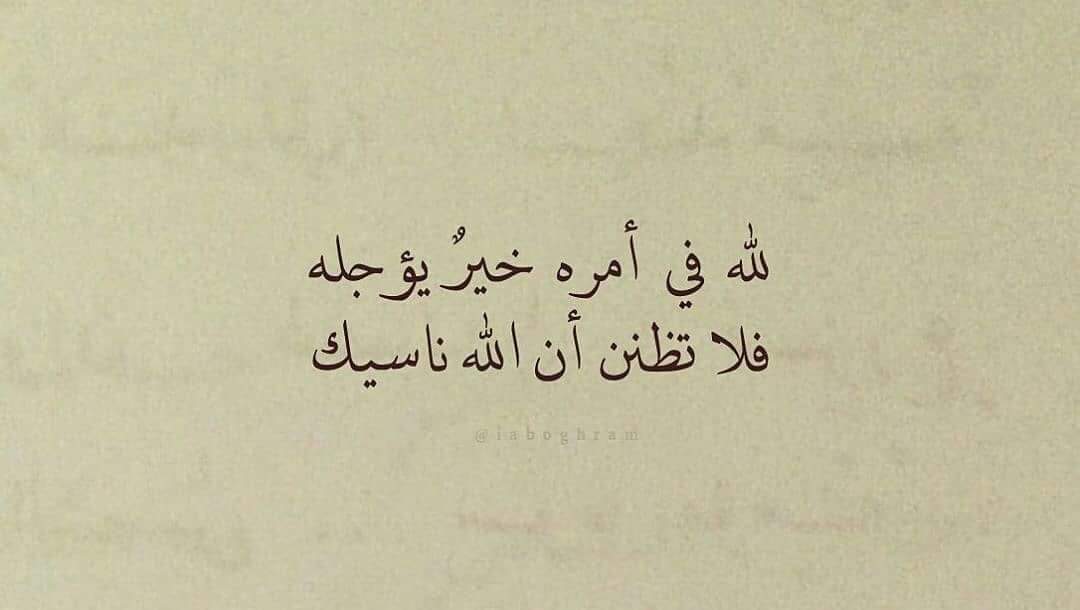 لله في أمره خيرٌ يؤجله
فلا تظنن أن الله ناسيك
@iaboghram